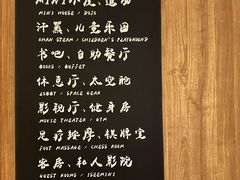 MINI HOUSE / DOJO
汗蒸、儿童乐园
KHAN STEAM / CHILDREN'S PLAYGROUND
书吧、自助餐厅
BOOKS / BUFFET
休息厅、太空舱
LOBBY / SPACE GEAR
影视厅、健身房
MOVIE THEATER / GYM
足疗按摩、棋牌室
FOOT MASSAGE / CHESS ROOM
客房、私人影院
GUEST ROOMS /